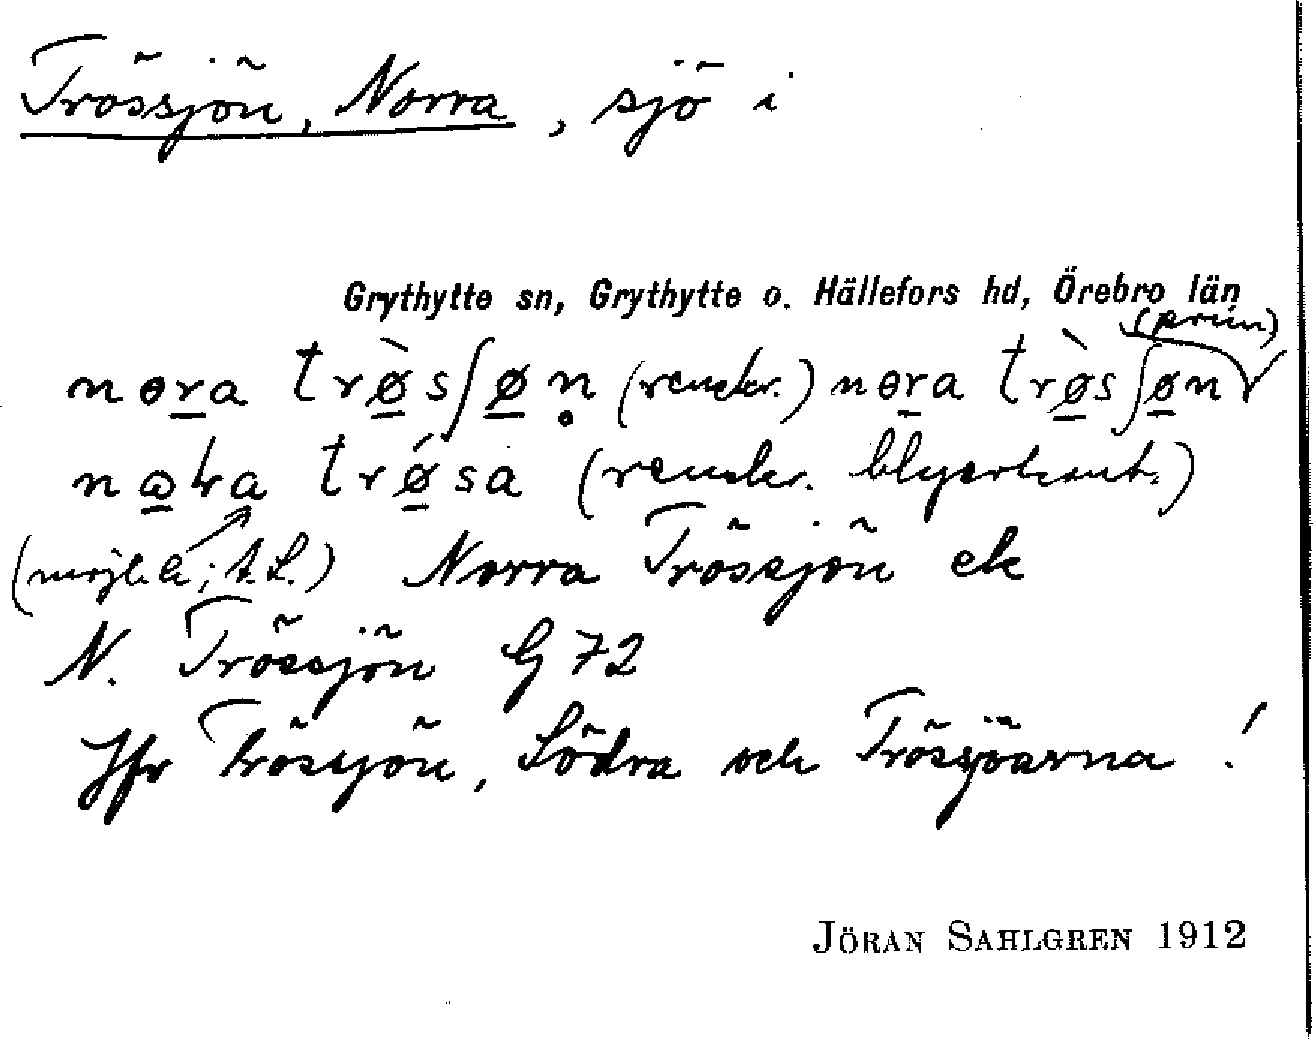 Trössjön, Norra, sjö i
Grythytte sn, Grythytte o. Hällefors hd, Örebro län
(prim)
nɵra trø̀sʃøn̥ (renskr.) nɵra trø̀sʃøn
trǿsa (renskr. blyertsant.)
(möjl. a; t. L.) Norra Trössjön ek
N. Trössjön G 72
Jfr Trössjön, Södra och Trössjöarna !
JÖRAN SAHLGREN 1912